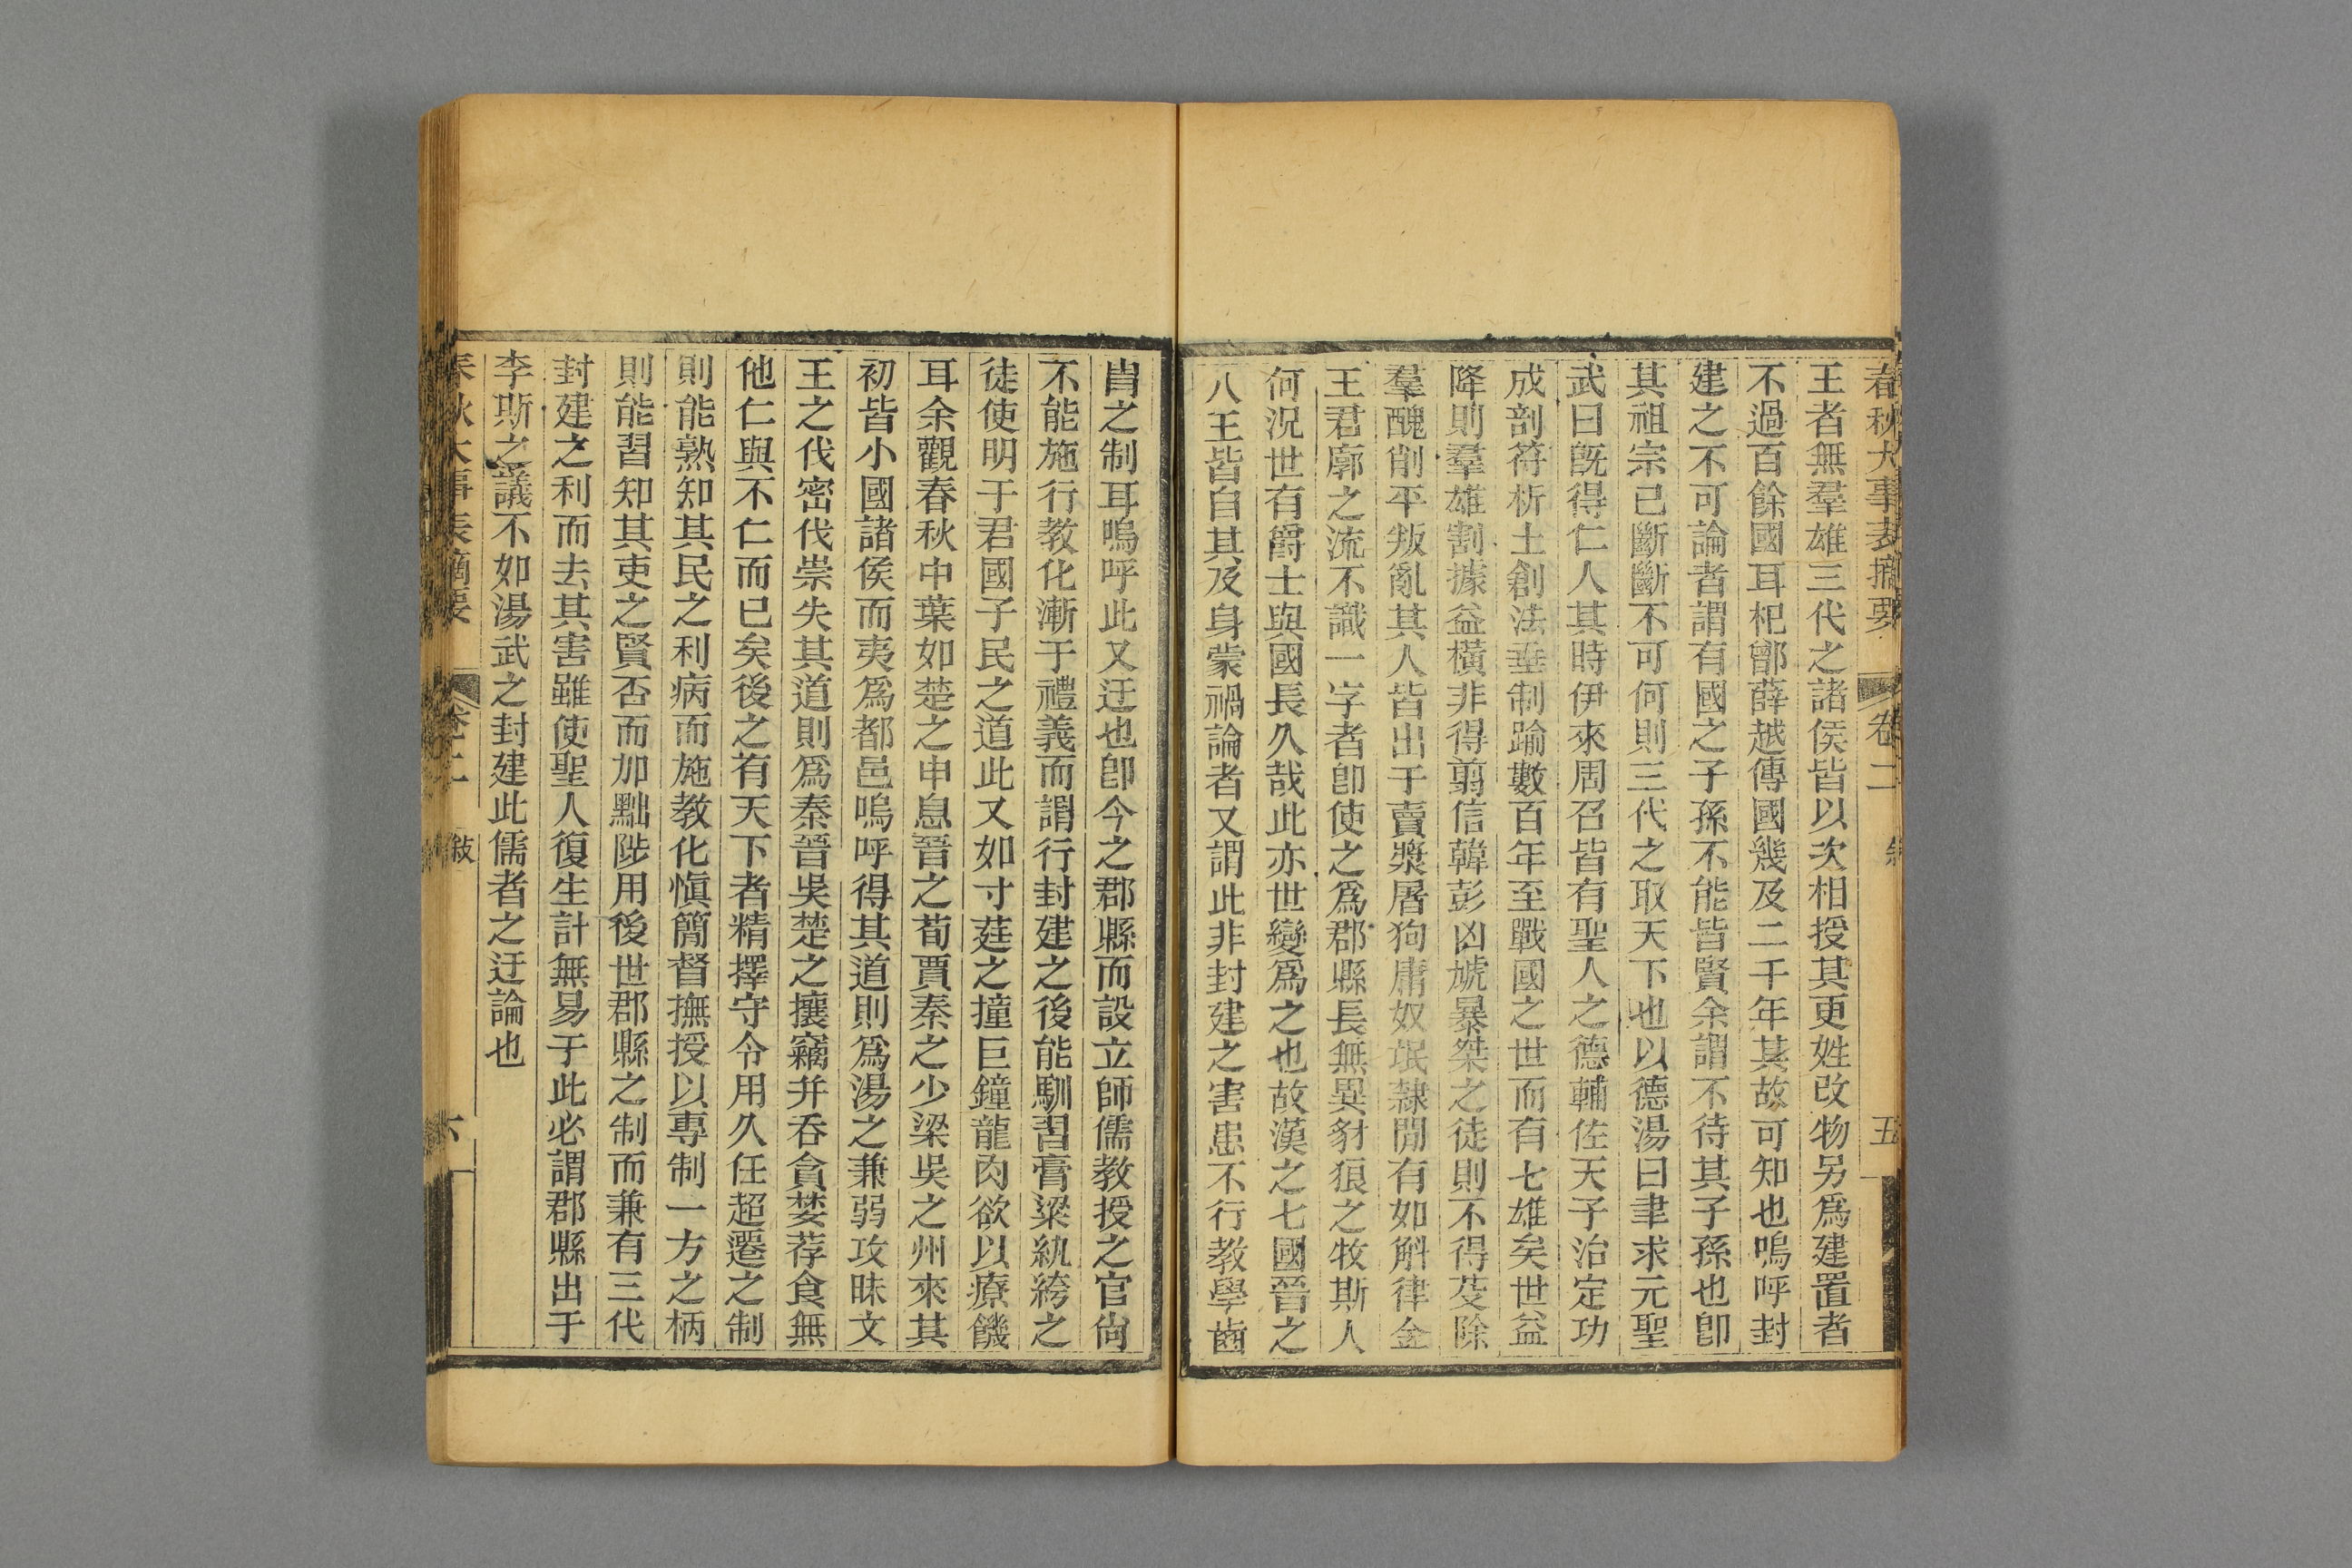 春秋大事表摘要 卷二 五
王者無羣雄三代之諸侯皆以次相授其更姓改物另爲建置者
不過百餘國耳杞鄫薛越傳國幾及二千年其故可知也嗚呼封
建之不可論者謂有國之子孫不能皆賢余謂不待其子孫也卽
其祖宗已斷斷不可何則三代之取天下也以德湯曰聿求元聖
武曰旣得仁人其時伊來周召皆有聖人之德輔佐天子治定功
成剖符析土創法垂制踰數百年至戰國之世而有七雄矣世益
降則羣雄割據益橫非得翦信韓彭凶虓暴桀之徒則不得芟除
羣醜削平叛亂其人皆出于賣漿屠狗庸奴氓隸閒有如斛律金
王君廓之流不識一字者卽使之爲郡縣長無異豺狼之牧斯人
何況世有爵士與國長久哉此亦世變爲之也故漢之七國晉之
八王皆自其及身蒙禍論者又謂此非封建之害患不行教學齒
胄之制耳嗚呼此又迂也卽今之郡縣而設立師儒教授之官尙
不能施行教化漸于禮義而謂行封建之後能馴習膏粱紈綺之
徒使明于君國子民之道此又如寸莛之撞巨鐘龍肉欲以療饑
耳余觀春秋中葉如楚之申息晉之荀賈秦之少梁吳之州來其
初皆小國諸侯而夷爲都邑嗚呼得其道則爲湯之兼弱攻昧文
王之伐密伐崇失其道則爲秦晉吳楚之攘竊并吞貪婪荐食無
他仁與不仁而已矣後之有天下者精擇守令用久任超遷之制
則能熟知其民之利病而施教化愼簡督撫授以專制一方之柄
則能習知其吏之賢否而加黜陟用後世郡縣之制而兼有三代
封建之利而去其害雖使聖人復生計無易于此必謂郡縣出于
李斯之議不如湯武之封建此儒者之迂論也
春秋大事表摘要 卷二 敍 六